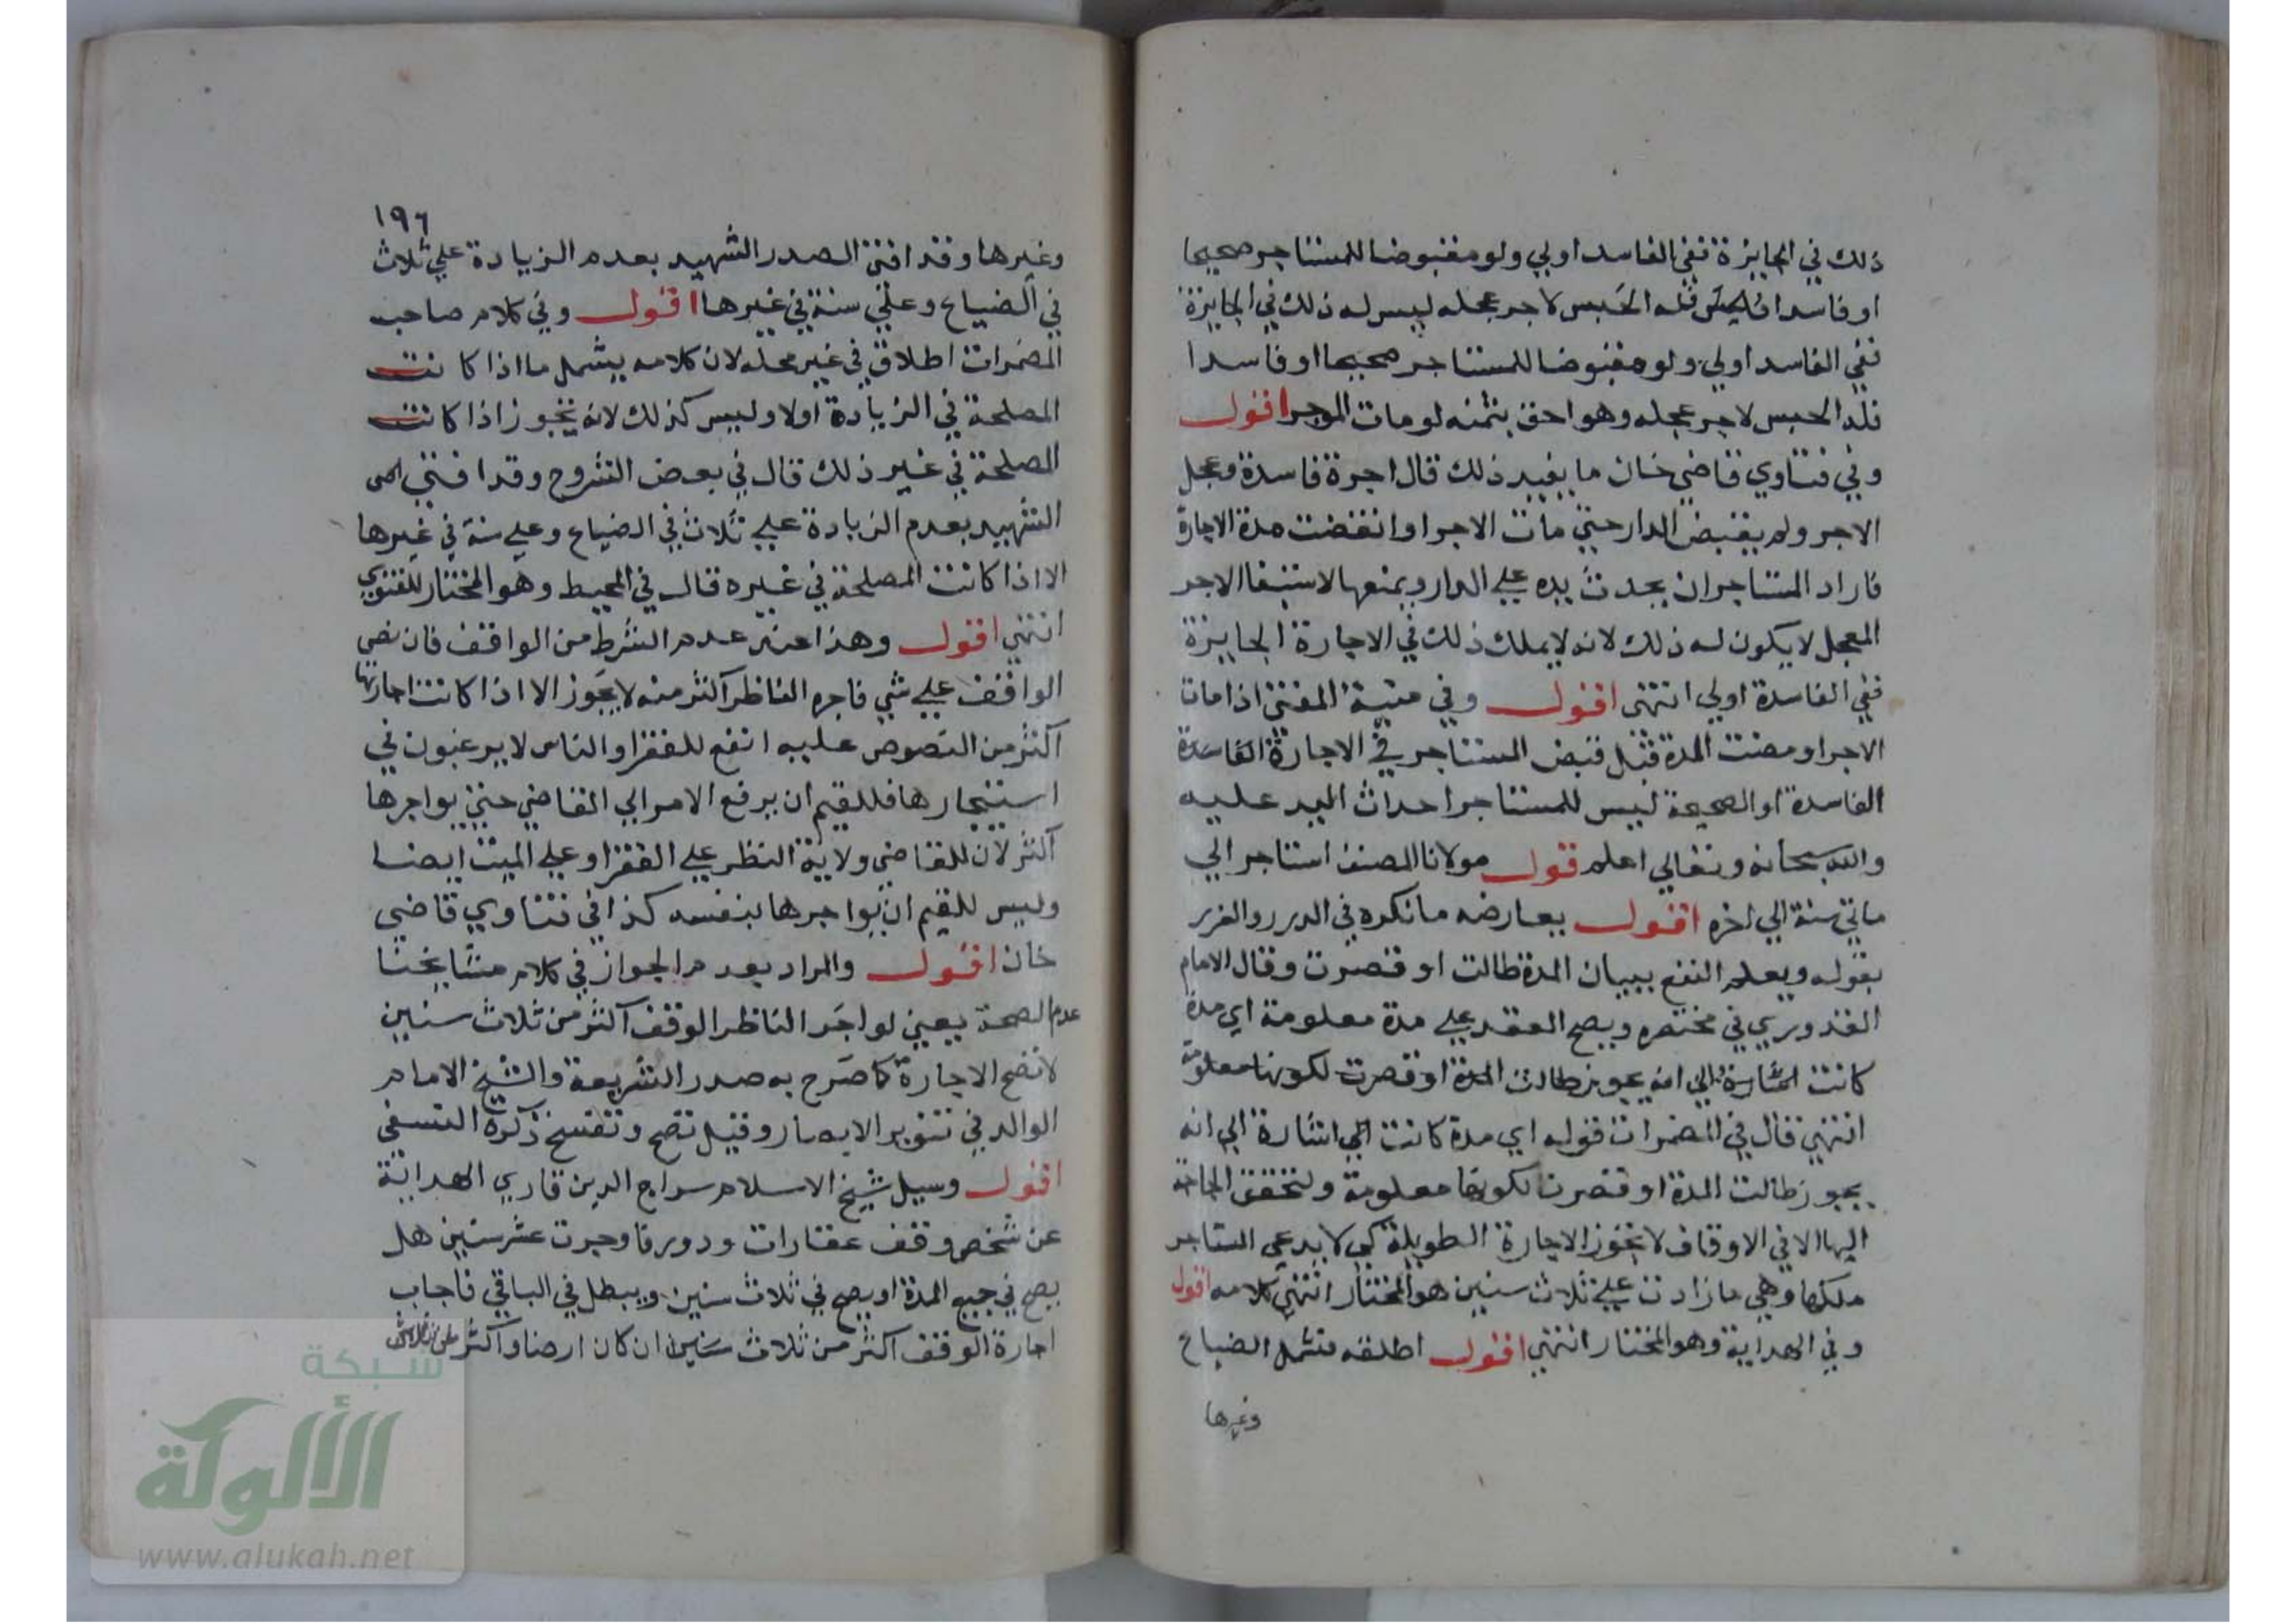 ذلك في الجايزة ففي الفاسد اولي ولو مقبوضا للمستاجر صحيحا
او فاسدا فله الحبس لاجر عجله ليس له ذلك في الجايزة
ففي الفاسد اولي ولو مقبوضا للمستاجر صحيحا او فاسدا
فله الحبس لاجر عجله وهو احق بثمنه لو مات الموجر اقول
وفي فتاوي قاضي خان ما يفيد ذلك قال اجرة فاسدة وعجل
الاجر ولم يقبض الدار حتي مات الاجر او انقضت مدة الاجارة
فاراد المستاجر ان يحدث يده علي الدار ويمنعها لاستيفا الاجر
المعجل لا يكون له ذلك لانه لا يملك ذلك في الاجارة الجايزة
ففي الفاسدة اولي انتهى اقول وفي منية المفتي اذا مات
الاجر او مضت المدة قبل قبض المستاجر في الاجارة الفاسدة
الفاسدة او الصحيحة ليس للمستاجر احداث اليد عليه
والله سبحانه وتعالي اعلم قول مولانا المصنف استاجر الي
ماتي سنة الي اخره اقول يعارضه ما نكره في الدرر والغرر
بقوله ويعلم النفع ببيان المدة طالت او قصرت وقال الامام
القدوري في مختصره ويصح العقد علي مدة معلومة اي مدة
كانت اشارة الي انه يجوز طالت المدة او قصرت لكونها معلومة
انتهي قال في المضمرات قوله اي مدة كانت الي اشارة الي انه
يجوز طالت المدة او قصرت لكونها معلومة ولتحقق الحاجة
اليها الا في الاوقاف لا تجوز الاجارة الطويلة كي لا يدعي المستاجر
ملكها وهي ما زادت علي ثلاث سنين هو المختار انتهي كلامه اقول
وفي الهداية وهو المختار انتهي اقول اطلقه فشمل الضياع
وغيرها
١٩٦
وغيرها وقد افتى الصدر الشهيد بعدم الزيادة علي ثلاث
في الضياع وعلي سنة في غيرها اقول وفي كلام صاحب
المضمرات اطلاق في غير محله لان كلامه يشمل ما اذا كانت
المصلحة في الزيادة اولا وليس كذلك لانه يجوز اذا كانت
المصلحة في غير ذلك قال في بعض الشروح وقد افتي
الشهيد بعدم الزيادة علي ثلاث في الضياع وعلي سنة في غيرها
الا اذا كانت المصلحة في غيره قال في المحيط وهو المختار للفتوي
انتهي اقول وهذا عند عدم الشرط من الواقف فان نص
الواقف علي شي فاجره الناظر اكثر منه لا يجوز الا اذا كانت اجارتها
اكثر من النصوص عليه انفع للفقرا والناس لا يرغبون في
استيجارها فللقيم ان يرفع الامر الي القاضي حتي يواجرها
اكثر لان للقاضي ولاية النظر علي الفقرا وعلي الميت ايضا
وليس للقيم ان يواجرها بنفسه كذا في فتاوي قاضي
خان اقول والمراد بعدم الجواز في كلام مشايخنا
عدم الصحة يعني لو اجر الناظر الوقف اكثر من ثلاث سنين
لا تصح الاجارة كما صرح به صدر الشريعة والشيخ الامام
الوالد في تنوير الابصار وقيل تصح وتفسخ ذكره النسفي
اقول وسيل شيخ الاسلام سراج الدين قاري الهداية
عن شخص وقف عقارات ودورا فاوجرت عشر سنين هل
يصح في جميع المدة او يصح في ثلاث سنين ويبطل في الباقي فاجاب
اجارة الوقف اكثر من ثلاث سنين ان كان ارضا واكثر من
شبكة
الألوكة
www.alukah.net